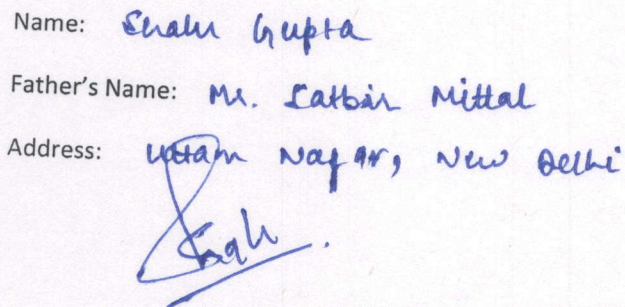 Name: Shalu Gupta
Father's Name: Mr. Satbir Mittal
Address: Uttam Nagar, New Delhi